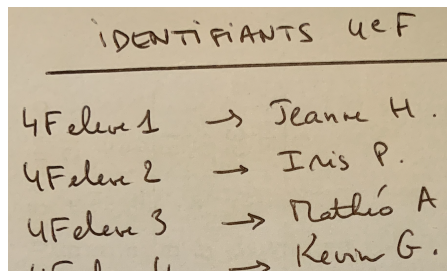 IDENTIFIANTS 4e F
4F eleve 1 → Jeanne H.
4F eleve 2 → Iris P.
4F eleve 3 → Mathéo A
4F eleve 4 → Kevin G.